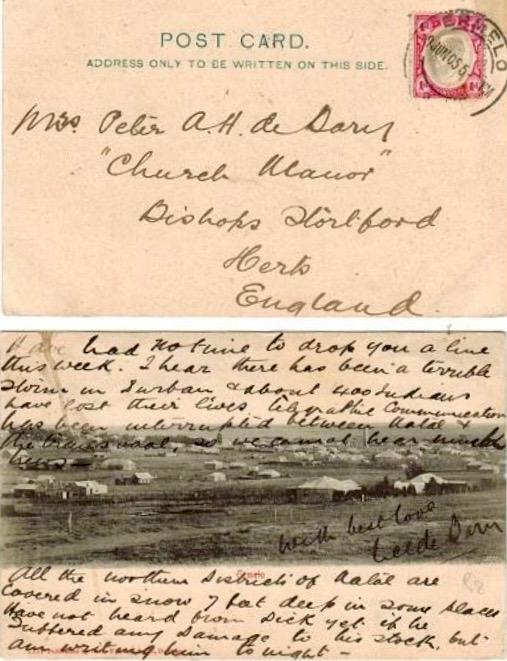 POST CARD.
ADDRESS ONLY TO BE WRITTEN ON THIS SIDE.
ERMELO
JUN 05
Mrs. Peter A. H. de
"Church Manor"
Bishops Stortford
Herts
England.
Have had no time to drop you a line
this week. I hear there has been a terrible
in Durban & about 400 Indians
have lost their lives, telegraphic communication
has been interrupted between Natal &
the Transvaal, so we cannot hear much
with best love
Ermelo
All the northern districts of Natal are
covered in snow 7 feet deep in some places
Have not heard from Dick yet if he
suffered any damage to his stock, but
am writing him to night -